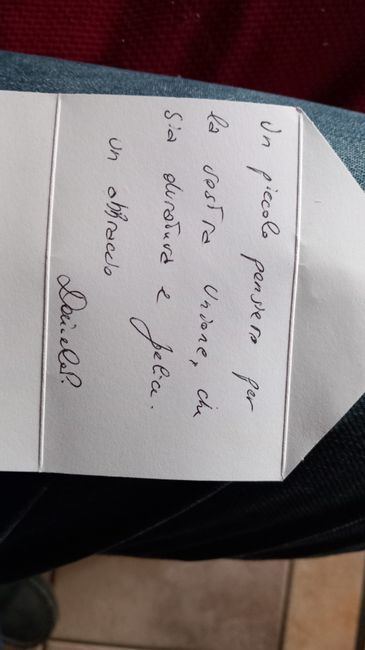 Un piccolo pensiero per
la vostra Unione, che
Sia duratura e felice.
un abbraccio
Daniela P.